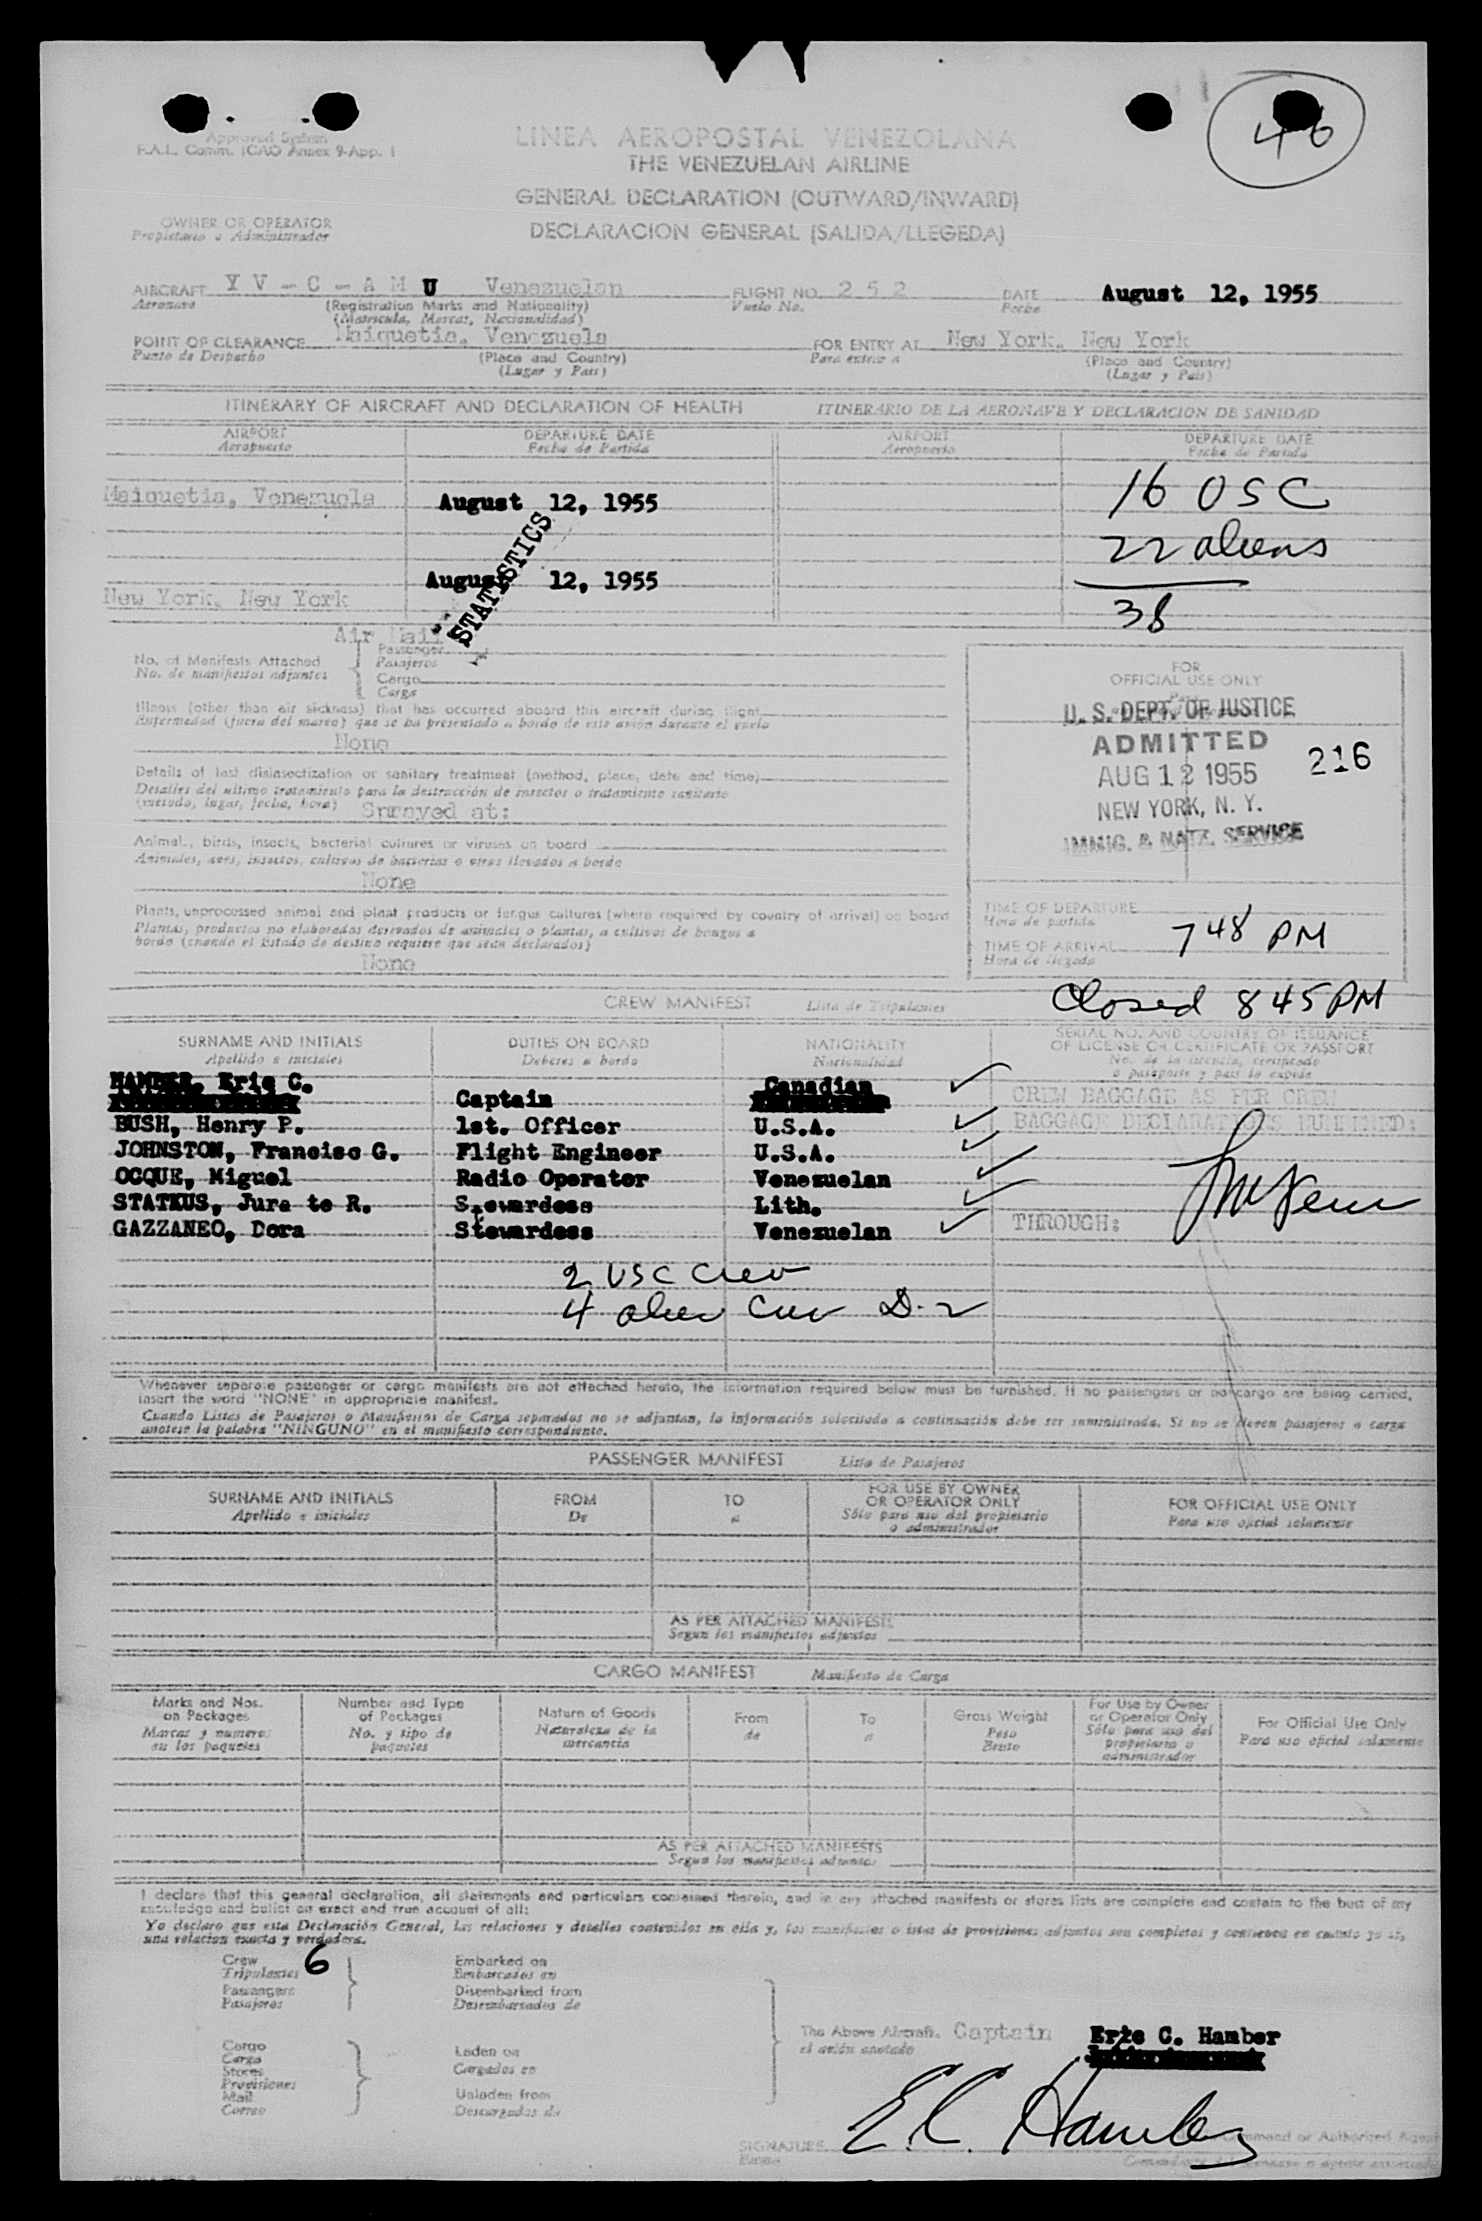 46
Approved System
F.A.L. Comm. ICAO Annex 9-App. 1
LINEA AEROPOSTAL VENEZOLANA
THE VENEZUELAN AIRLINE
GENERAL DECLARATION (OUTWARD/INWARD)
DECLARACION GENERAL (SALIDA/LLEGEDA)
OWNER OR OPERATOR
Propietario o Administrador
AIRCRAFT Y V - C - A M U Venezuelan FLIGHT NO. 2 5 2 DATE August 12, 1955
Aeronave (Registration Marks and Nationality) Vuelo No. Fecha
(Matricula, Marcas, Nacionalidad)
POINT OF CLEARANCE Maiquetia, Venezuela FOR ENTRY AT New York, New York
Punto de Despacho (Place and Country) Para entrar a (Place and Country)
(Lugar y Pais) (Lugar y Pais)
ITINERARY OF AIRCRAFT AND DECLARATION OF HEALTH ITINERARIO DE LA AERONAVE Y DECLARACION DE SANIDAD
AIRPORT DEPARTURE DATE AIRPORT DEPARTURE DATE
Aeropuerto Fecha de Partida Aeropuerto Fecha de Partida
Maiquetia, Venezuela August 12, 1955 16 USC
22 aliens
New York, New York August 12, 1955
38
STATISTICS
Air Mail
No. of Manifests Attached Passenger
No. de manifiestos adjuntos Pasajeros
Cargo
Carga
Illness (other than air sickness) that has occurred aboard this aircraft during flight
Enfermedad (fuera del mareo) que se ha presentado a bordo de este avión durante el vuelo
None
Details of last disinsectization or sanitary treatment (method, place, date and time)
Detalles del ultimo tratamiento para la destrucción de insectos o tratamiento sanitario
(metodo, lugar, fecha, hora) Sprayed at:
Animal, birds, insects, bacterial cultures or viruses on board
Animales, aves, insectos, cultivos de bacterias o virus llevados a bordo
None
Plants, unprocessed animal and plant products or fungus cultures (where required by country of arrival) on board
Plantas, productos no elaborados derivados de animales o plantas, o cultivos de hongos a
bordo (cuando el Estado de destino requiere que sean declarados)
None
FOR
OFFICIAL USE ONLY
U. S. DEPT. OF JUSTICE
ADMITTED
AUG 12 1955 216
NEW YORK, N. Y.
IMMIG. & NATZ. SERVICE
TIME OF DEPARTURE
Hora de partida
TIME OF ARRIVAL 7 48 PM
Hora de llegada
Closed 8 45 PM
CREW MANIFEST Lista de Tripulantes
SURNAME AND INITIALS DUTIES ON BOARD NATIONALITY SERIAL NO. AND COUNTRY OF ISSUANCE
Apellido e iniciales Deberes a bordo Nacionalidad OF LICENSE OR CERTIFICATE OR PASSPORT
No. de la licencia, certificado
o pasaporte y pais lo expide
HAMBER, Eric C. Captain Canadian CREW BAGGAGE AS PER CREW
BUSH, Henry P. 1st. Officer U.S.A. BAGGAGE DECLARATIONS NUMBERED:
JOHNSTON, Francisc G. Flight Engineer U.S.A.
OCQUE, Miguel Radio Operator Venezuelan
STATKUS, Jura te R. Stewardess Lith.
GAZZANEO, Dora Stewardess Venezuelan THROUGH:
2 USC Crew
4 alien Crew D-2
Whenever separate passenger or cargo manifests are not attached hereto, the information required below must be furnished. If no passengers or no cargo are being carried,
insert the word "NONE" in appropriate manifest.
Cuando Listas de Pasajeros o Manifiestos de Carga separados no se adjuntan, la información solicitada a continuación debe ser suministrada. Si no se llevan pasajeros o carga
anotese la palabra "NINGUNO" en el manifiesto correspondiente.
PASSENGER MANIFEST Lista de Pasajeros
SURNAME AND INITIALS FROM TO FOR USE BY OWNER OR OPERATOR ONLY FOR OFFICIAL USE ONLY
Apellido e iniciales De a Sólo para uso del propietario o administrador Para uso oficial solamente
AS PER ATTACHED MANIFESTS
Segun los manifiestos adjuntos
CARGO MANIFEST Manifiesto de Carga
Marks and Nos. on Packages Number and Type of Packages Nature of Goods From To Gross Weight For Use by Owner or Operator Only For Official Use Only
Marcas y numeros en los paquetes No. y tipo de paquetes Naturaleza de la mercancia de a Peso Bruto Sólo para uso del propietario o administrador Para uso oficial solamente
AS PER ATTACHED MANIFESTS
Segun los manifiestos adjuntos
I declare that this general declaration, all statements and particulars contained therein, and in any attached manifests or stores lists are complete and contain to the best of my
knowledge and belief an exact and true account of all:
Yo declaro que esta Declaración General, las relaciones y detalles contenidos en ella y, los manifiestos o listas de provisiones adjuntos son completos y contienen en cuanto yo sé,
una relacion exacta y verdadera.
Crew 6 Embarked on
Tripulantes Embarcados en
Passengers Disembarked from
Pasajeros Desembarcados de
Cargo
Carga Laden on
Stores Cargados en
Provisiones
Mail Unladen from
Correo Descargados de
The Above Aircraft. Captain Eric C. Hamber
el avión anotado
SIGNATURE E.C. Hamber Command or Authorized Agent
Firma